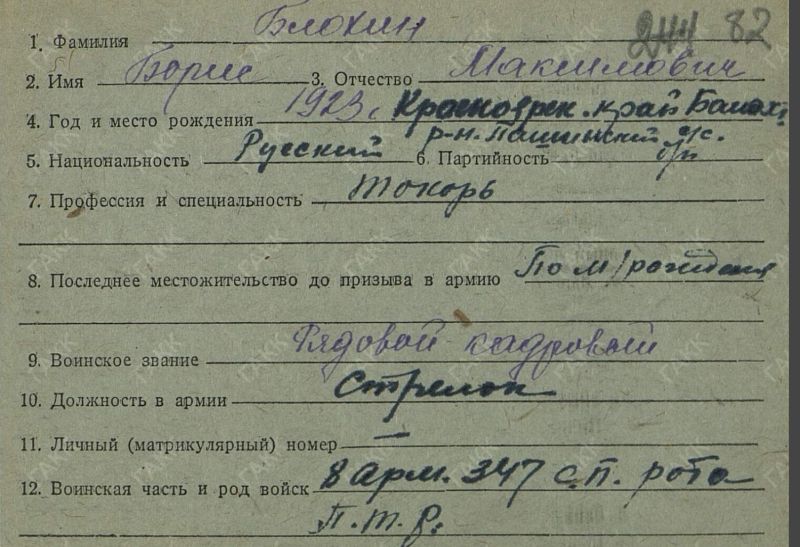 244 82
1. Фамилия Блохин
2. Имя Борис 3. Отчество Максимович
4. Год и место рождения 1923 г. Красноярск. край Балахт.
р-н. Пашинский с/с.
5. Национальность Русский 6. Партийность б/п
7. Профессия и специальность токорь
8. Последнее местожительство до призыва в армию По м/рождения
9. Воинское звание Рядовой кадровой
10. Должность в армии Стрелок
11. Личный (матрикулярный) номер —
12. Воинская часть и род войск 8 арм. 347 с.п. рота
П.Т.Р.